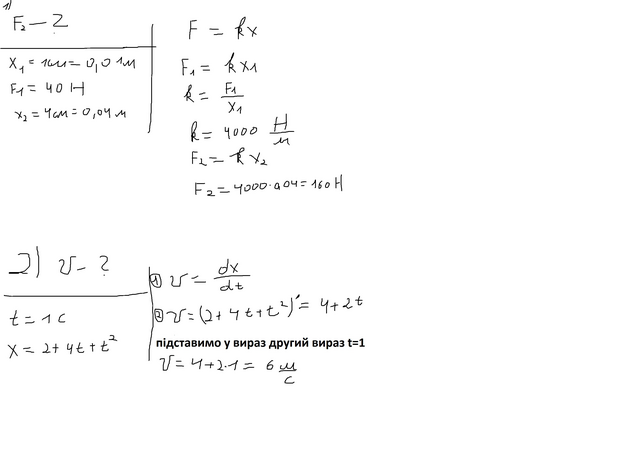 1)
F₂ — ?
x₁ = 1см = 0,01м
F₁ = 40 Н
x₂ = 4см = 0,04 м
F = kx
F₁ = kx₁
k = F₁/x₁
k = 4000 Н/м
F₂ = kx₂
F₂ = 4000·0,04 = 160Н
2) v - ?
t = 1 c
x = 2 + 4t + t²
① v = dx/dt
② v = (2 + 4t + t²)' = 4 + 2t
підставимо у вираз другий вираз t=1
v = 4 + 2·1 = 6 м/с